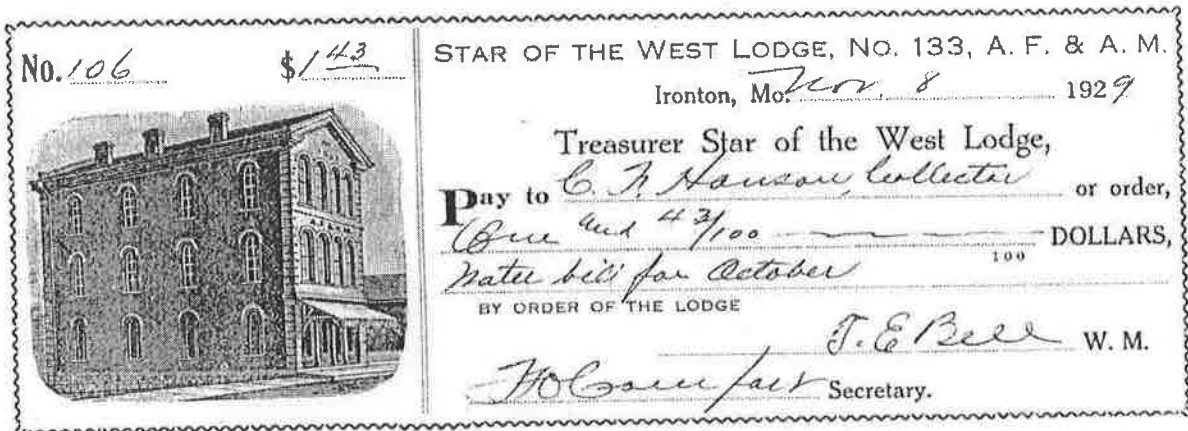 No. 106 $1 43
STAR OF THE WEST LODGE, NO. 133, A. F. & A. M.
Ironton, Mo. Nov. 8 1929
Treasurer Star of the West Lodge,
Pay to C. Hanson, Collector or order,
One and 43/100 DOLLARS,
100
Water bill for October
BY ORDER OF THE LODGE
T. E Bell W. M.
Secretary.